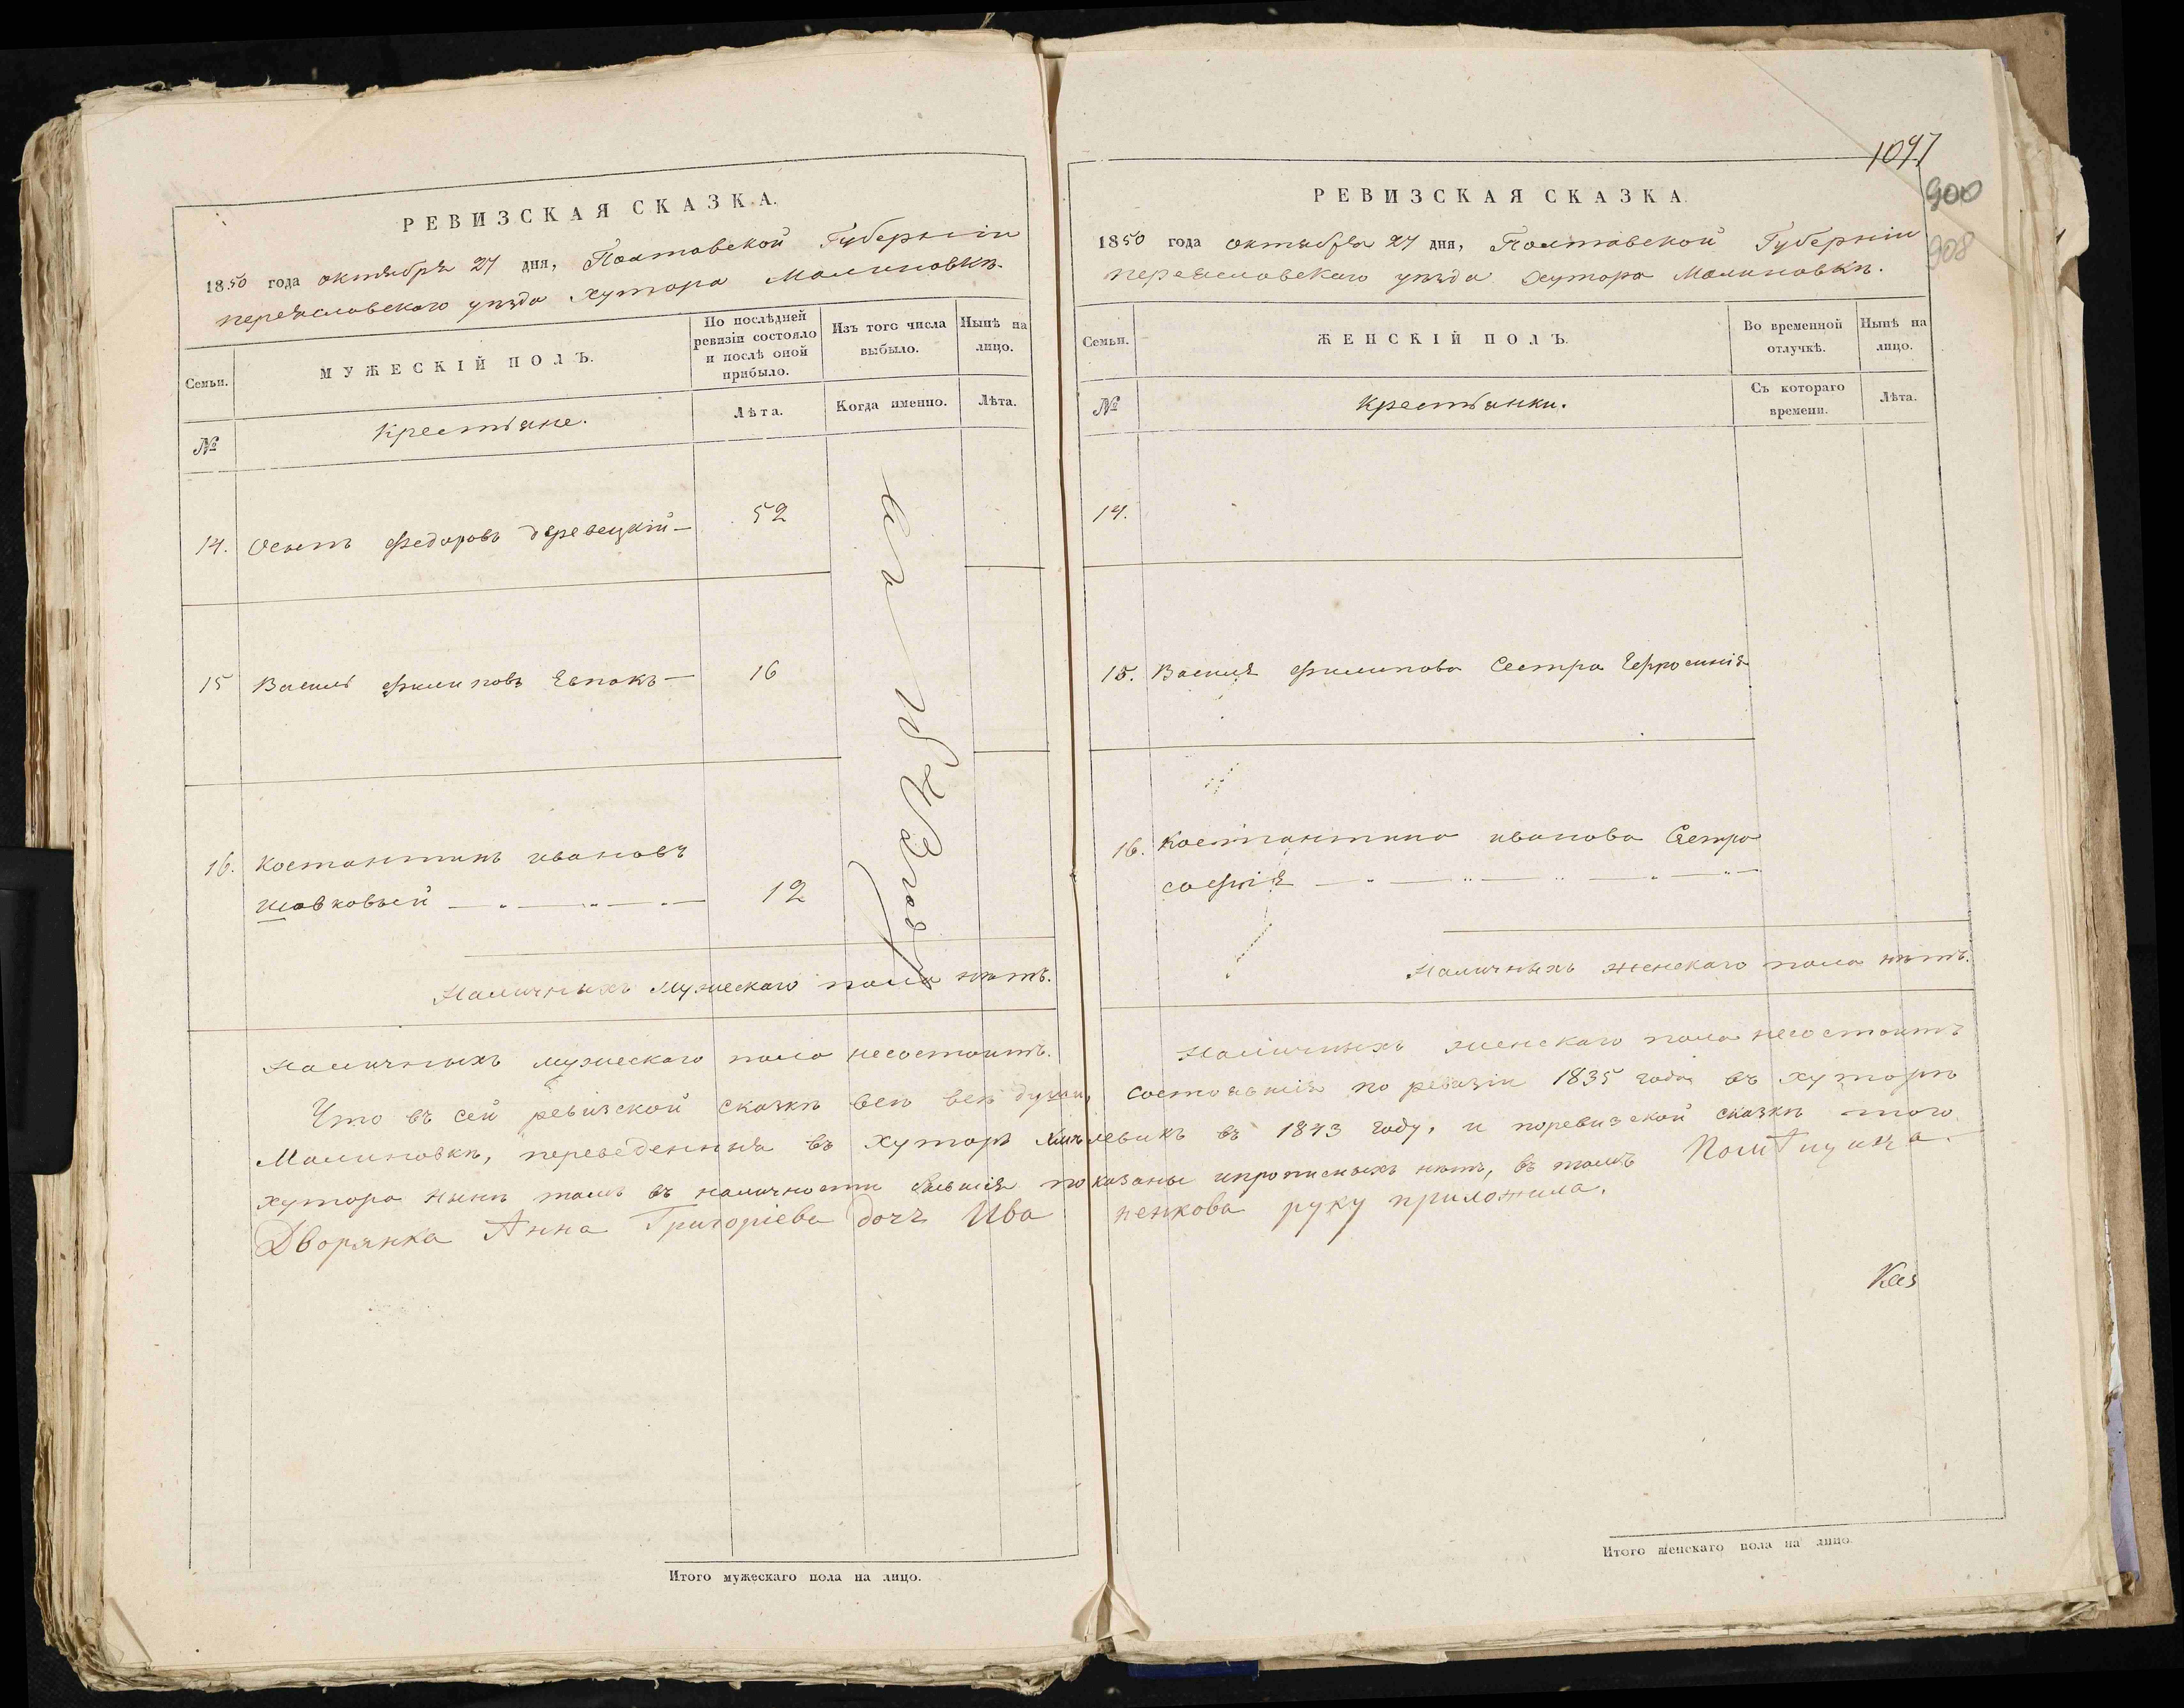 РЕВИЗСКАЯ СКАЗКА.
1850 года октября 27 дня, Полтавской Губерніи
переяславского уѣзда Хутора Малиновки.
Семьи.
МУЖЕСКІЙ ПОЛЪ.
По послѣдней ревизіи состояло и послѣ оной прибыло.
Изъ того числа выбыло.
Нынѣ на лицо.
№
Крестьяне.
Лѣта.
Когда именно.
Лѣта.
14. Осипъ Федоровъ 52
15 Василь Филиповъ 16
16. Костантинъ ивановъ
Шовковый 12
Наличныхъ мужескаго пола нѣтъ.
Наличныхъ мужескаго пола несостоитъ.
Что въ сей ревизской сказкѣ всѣ души, состоявшія по ревизіи 1835 года въ хуторѣ
Малиновкѣ, переведенныя въ хуторъ въ 1843 году, и поревизской сказкѣ того
хутора нынѣ тамъ въ наличности показаны ипрописныхъ нѣтъ, въ томъ Помѣщица
Дворянка Анна Григоріева дочъ Ива ненкова руку приложила.
Итого мужескаго пола на лицо.
1047
900
908
РЕВИЗСКАЯ СКАЗКА.
1850 года октября 27 дня, Полтавской Губерніи
переяславскаго уѣзда хутора Малиновки.
Семьи.
ЖЕНСКІЙ ПОЛЪ.
Во временной отлучкѣ.
Нынѣ на лицо.
№
Крестьянки.
Съ котораго времени.
Лѣта.
14.
15. Василя Филипова Сестра Ефросинія
16. Костантина иванова Сестра
софія
Наличныхъ женскаго пола нѣтъ.
Наличныхъ женскаго пола несостоитъ
Каз
Итого женскаго пола на лицо